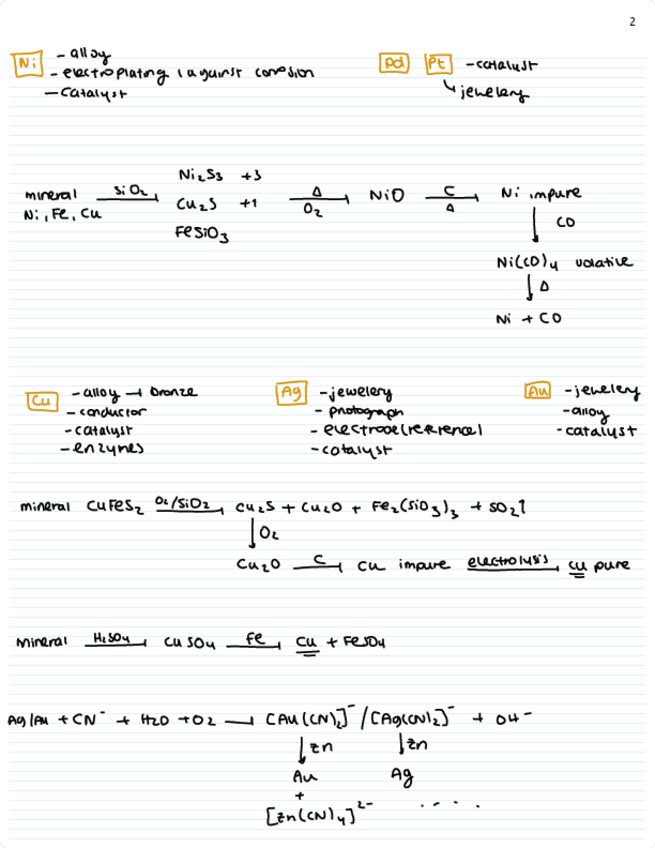 2
Ni - alloy
- electroplating (against corrosion
- catalyst
Pd Pt - catalyst
↳ jewelery
mineral Ni, Fe, Cu —SiO₂→ Ni₂S₃ +3 Cu₂S +1 FeSiO₃ —Δ/O₂→ NiO —C/Δ→ Ni impure
↓ CO
Ni(CO)₄ volative
↓ Δ
Ni + CO
Cu - alloy → bronze
- conductor
- catalyst
- enzymes
Ag - jewelery
- photograph
- electrode (reference)
- catalyst
Au - jewelery
- alloy
- catalyst
mineral CuFeS₂ —O₂/SiO₂→ Cu₂S + Cu₂O + Fe₂(SiO₃)₃ + SO₂↑
↓ O₂
Cu₂O —C→ Cu impure —electrolysis→ Cu pure
mineral —H₂SO₄→ CuSO₄ —Fe→ Cu + FeSO₄
Ag/Au + CN⁻ + H₂O + O₂ → [Au(CN)₂]⁻ / [Ag(CN)₂]⁻ + OH⁻
↓ Zn ↓ Zn
Au Ag
+
[Zn(CN)₄]²⁻ . . . .